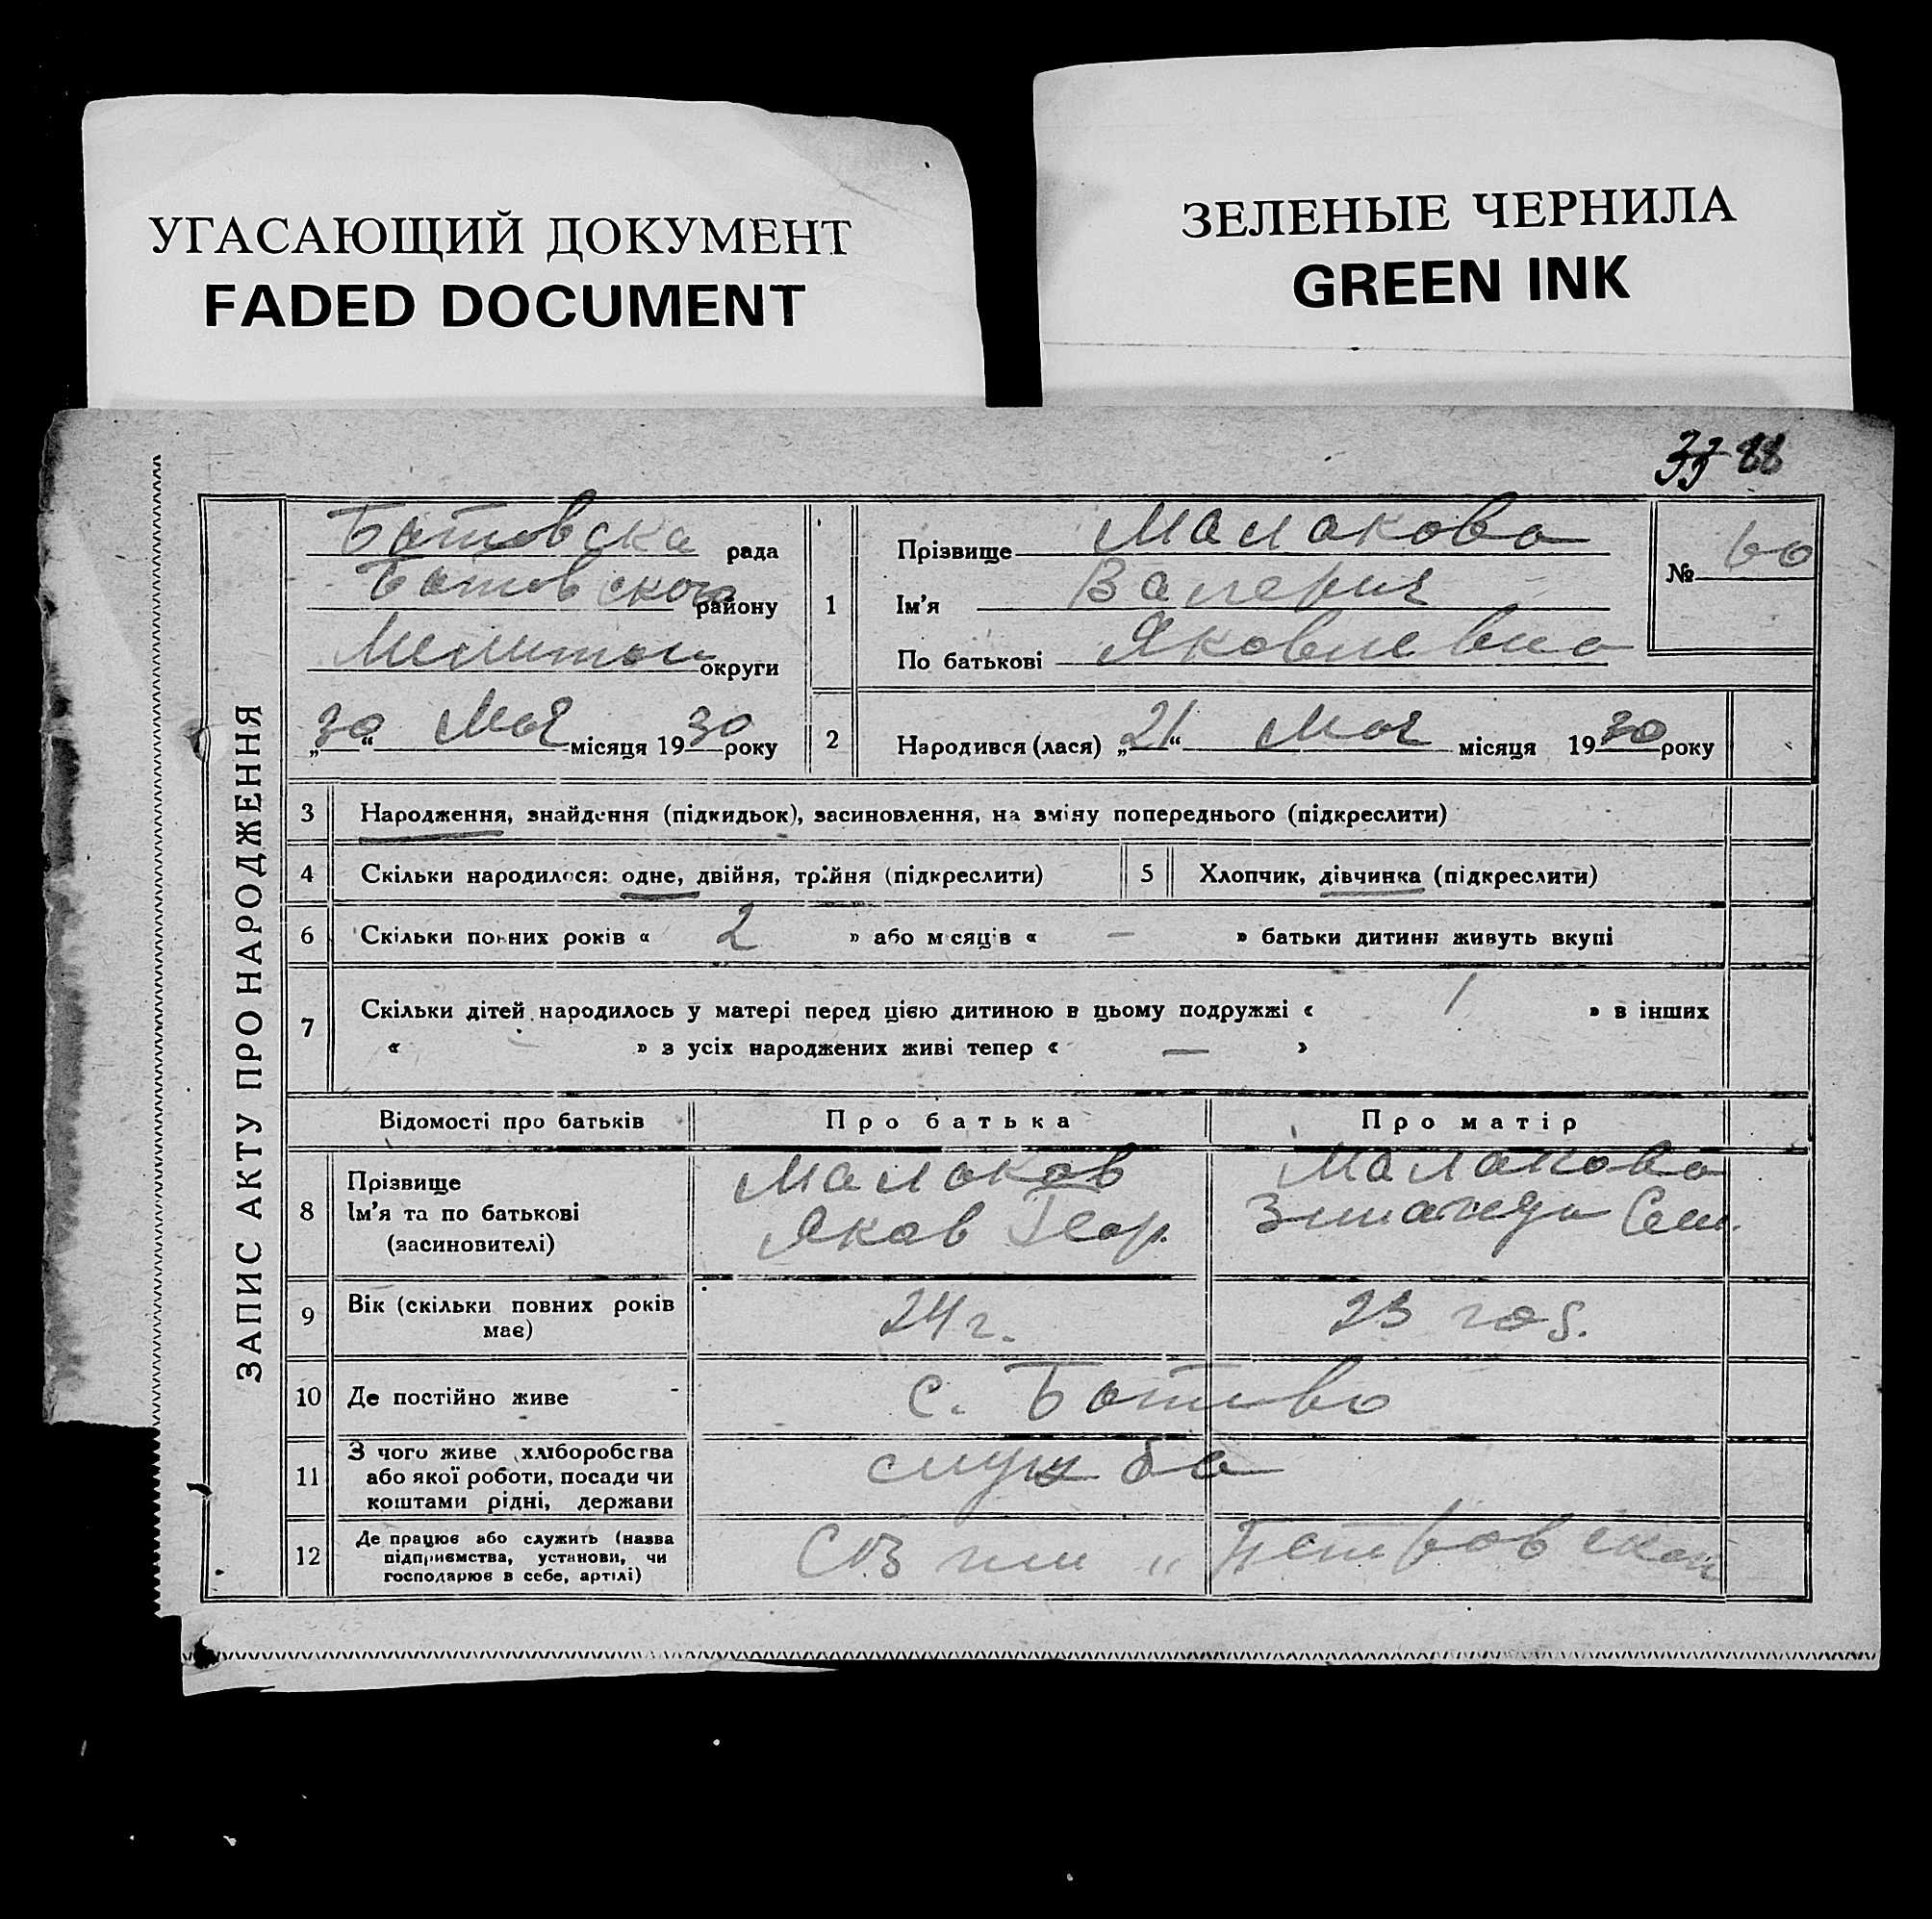 УГАСАЮЩИЙ ДОКУМЕНТ
FADED DOCUMENT
ЗЕЛЕНЫЕ ЧЕРНИЛА
GREEN INK
33 88
ЗАПИС АКТУ ПРО НАРОДЖЕННЯ
Ботевска рада
Ботевского району
Мелитоп округи
„30“ Мая місяця 1930 року
1
Прізвище Малакова
Ім’я Валерия
По батькові Яковлевна
№ 60
2 Народився (лася) „21“ Мая місяця 1930 року
3 Народження, знайдення (підкидьок), засиновлення, на зміну попереднього (підкреслити)
4 Скільки народилося: одне, двійня, трійня (підкреслити) 5 Хлопчик, дівчинка (підкреслити)
6 Скільки повних років « 2 » або місяців « — » батьки дитини живуть вкупі
7 Скільки дітей народилось у матері перед цією дитиною в цьому подружжі « 1 » в інших
« — » з усіх народжених живі тепер « — »
Відомості про батьків Про батька Про матір
8 Прізвище Ім’я та по батькові (засиновителі)
Малаков
Яков Геор.
Малакова
Зинаида Сем.
9 Вік (скільки повних років має) 24 г. 23 год.
10 Де постійно живе с. Ботево
11 З чого живе (хліборобства
або якої роботи, посади чи
коштами рідні, держави
служба
12 Де працює або служить (назва
підприємства, установи, чи
господарює в себе, артілі)
СОЗ им „Петровской